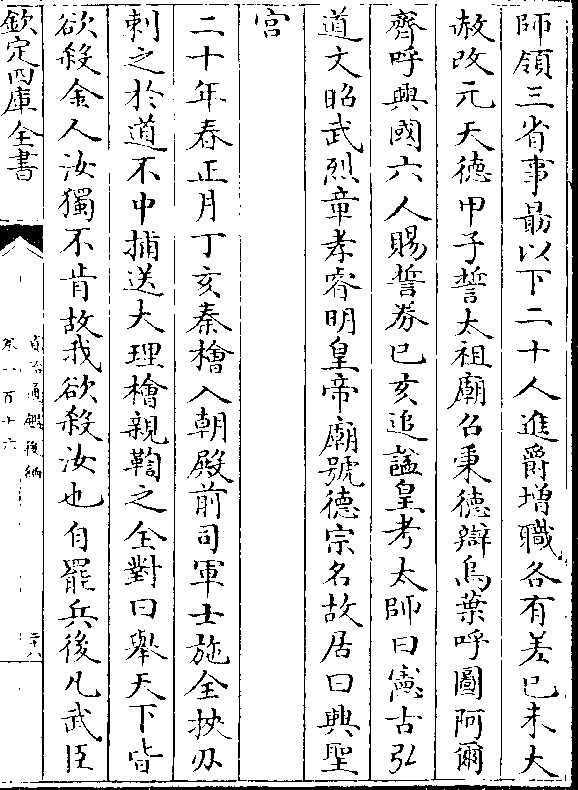 師領三省事勗以下二十人進爵増職各有差已未大
赦改元天德甲子誓太祖廟召秉德辯烏葉呼圖阿爾
齊呼興國六人賜誓券已亥追諡皇考太師曰憲古弘
道文昭武烈章孝睿明皇帝廟號德宗名故居曰興聖
宫
二十年春正月丁亥秦檜入朝殿前司軍士施全挾刃
刺之於道不中捕送大理檜親鞫之全對曰舉天下皆
欲殺金人汝獨不肯故我欲殺汝也自罷兵後凡武臣
欽定四庫全書
資治通鑑後編
卷一百十六